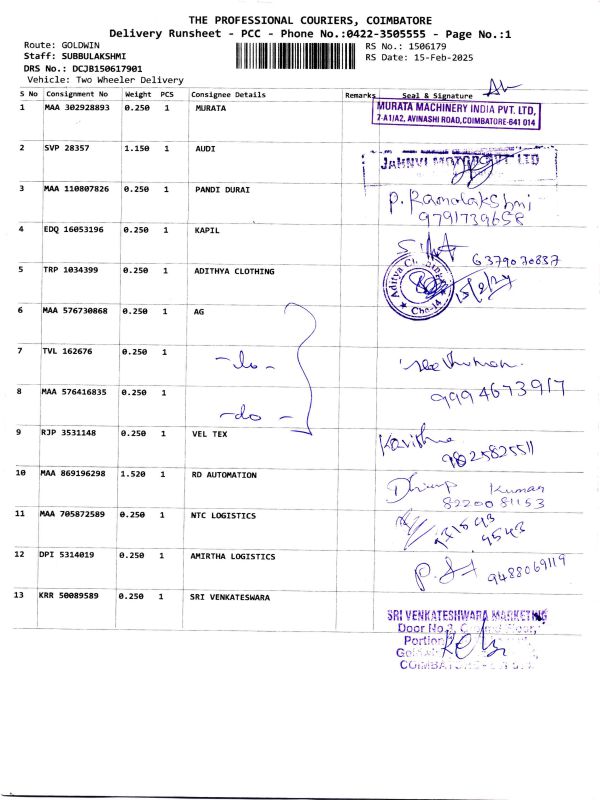 THE PROFESSIONAL COURIERS, COIMBATORE
Delivery Runsheet - PCC - Phone No.:0422-3505555 - Page No.:1
Route: GOLDWIN RS No.: 1506179
Staff: SUBBULAKSHMI RS Date: 15-Feb-2025
DRS No.: DCJB150617901
Vehicle: Two Wheeler Delivery
S No Consignment No Weight PCS Consignee Details Remarks Seal & Signature
1 MAA 302928893 0.250 1 MURATA MURATA MACHINERY INDIA PVT. LTD,
7-A1/A2, AVINASHI ROAD, COIMBATORE-641 014
2 SVP 28357 1.150 1 AUDI JAHNVI MOTOR PVT LTD
3 MAA 110807826 0.250 1 PANDI DURAI P. Ramalakshmi
9791739658
4 EDQ 16053196 0.250 1 KAPIL
6379070837
5 TRP 1034399 0.250 1 ADITHYA CLOTHING Aditya
6 MAA 576730868 0.250 1 AG
7 TVL 162676 0.250 1 -do-
8 MAA 576416835 0.250 1 -do- 9994673917
9 RJP 3531148 0.250 1 VEL TEX Kavishna
98025825511
10 MAA 869196298 1.520 1 RD AUTOMATION Kumar
8220081153
11 MAA 705872589 0.250 1 NTC LOGISTICS
9543
12 DPI 5314019 0.250 1 AMIRTHA LOGISTICS 9488069119
13 KRR 50089589 0.250 1 SRI VENKATESWARA
SRI VENKATESHWARA MARKETING
Door No.
Portion